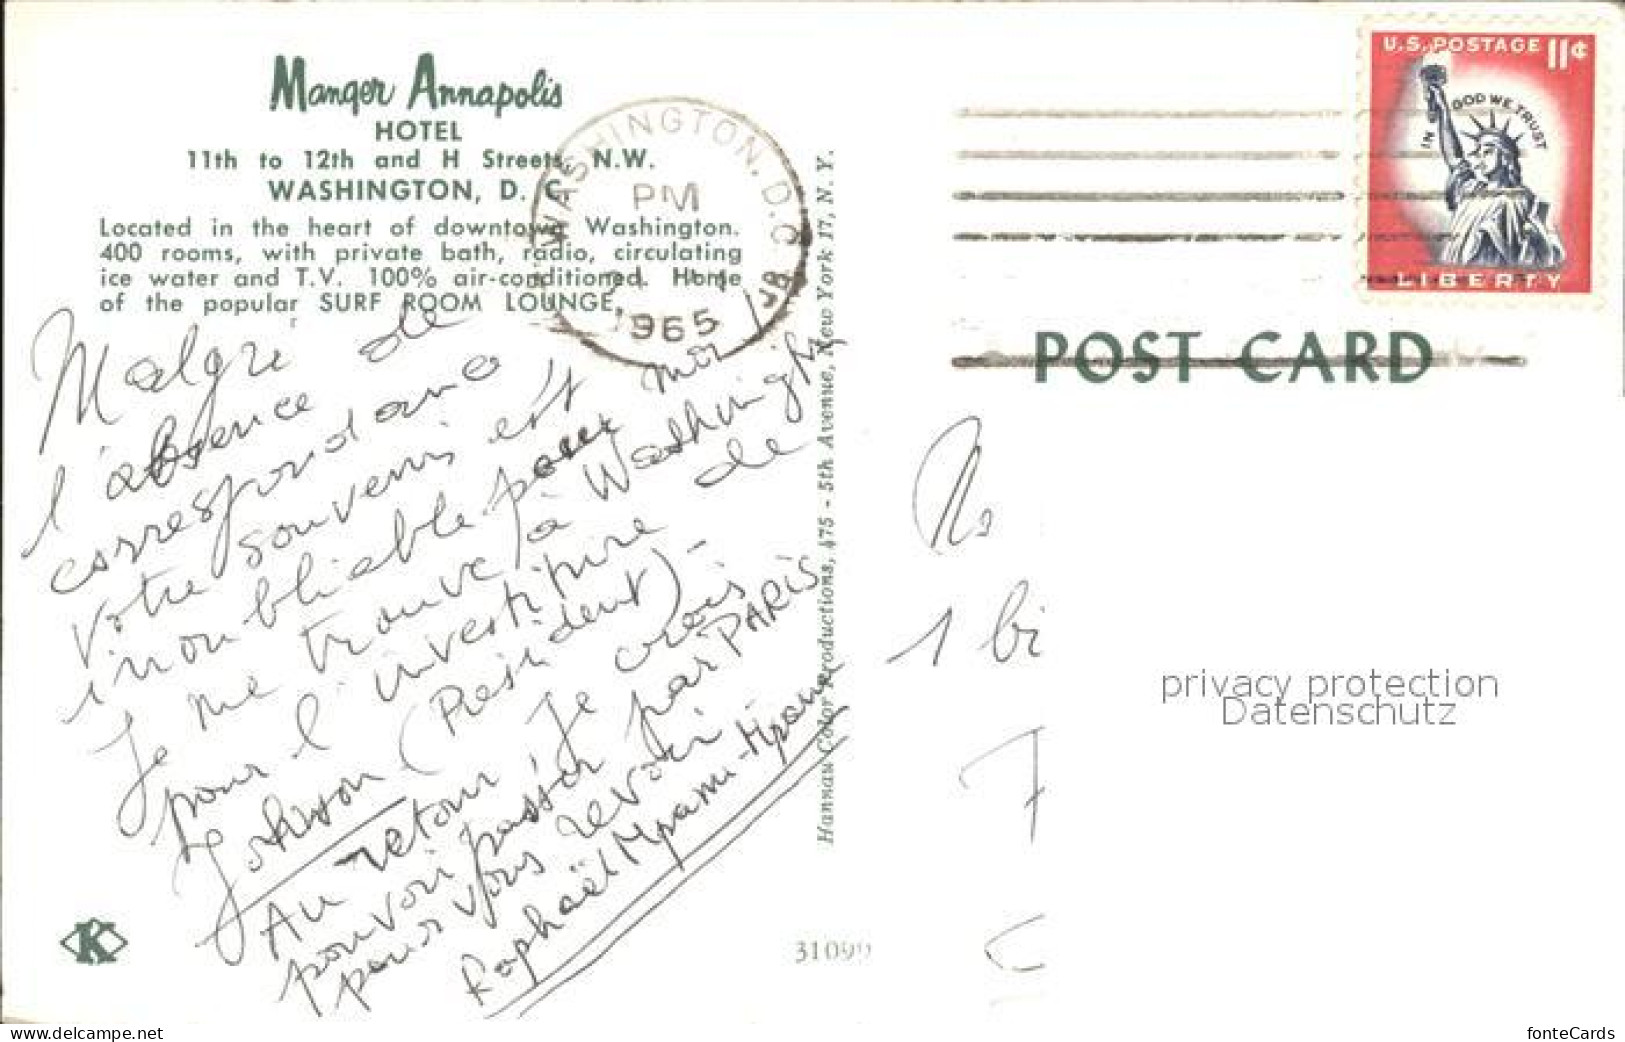 Manger Annapolis
HOTEL
11th to 12th and H Streets, N.W.
WASHINGTON, D. C.
Located in the heart of downtown Washington.
400 rooms, with private bath, radio, circulating
ice water and T.V. 100% air-conditioned. Home
of the popular SURF ROOM LOUNGE.
WASHINGTON, D.C.
PM
1965
U.S. POSTAGE 11¢
IN GOD WE TRUST
LIBERTY
POST CARD
Malgré
l'absence de
correspondance
votre souvenir est
inoubliable pour moi
Je me trouve à Washingt
pour l'investiture de
Johnson (President)-
Au retour je crois
pouvoir passer par PARIS
pour vous revoir
Raphaël
Hannau Color Productions, 475 - 5th Avenue, New York 17, N. Y.
K
31099
1 bi
privacy protection
Datenschutz
www.delcampe.net
fonteCards